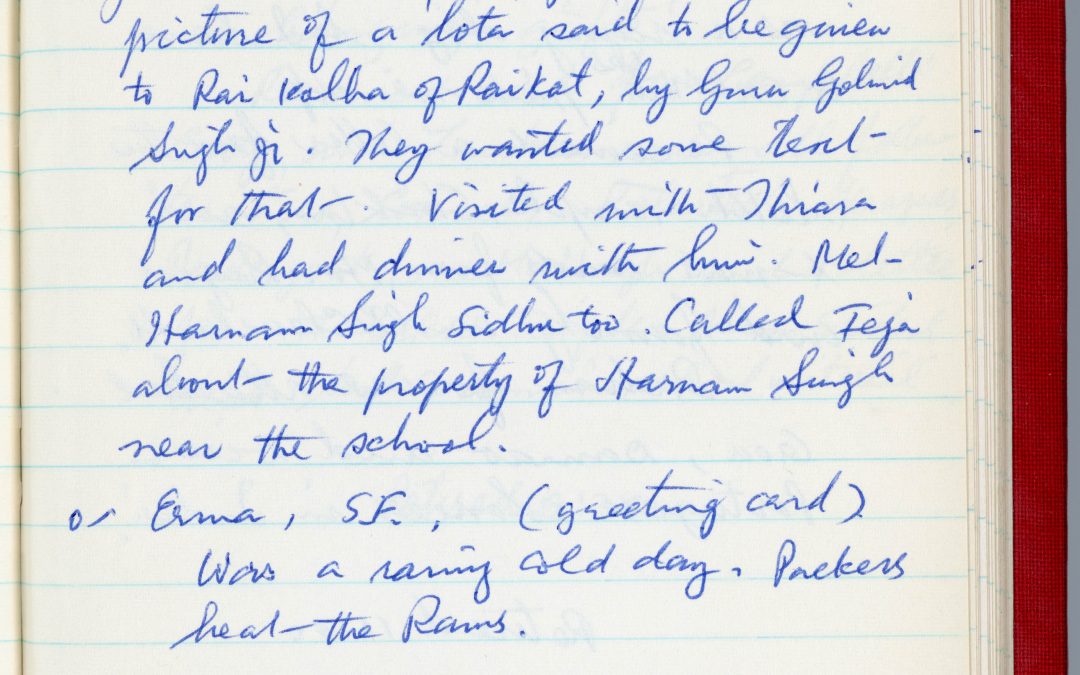 picture of a lota said to be given
to Rai Kalha of Raikot, by Guru Gobind
Singh ji. They wanted some text
for that. Visited with Thiara
and had dinner with him. Met
Harnam Singh Sidhu too. Called Teja
about the property of Harnam Singh
near the school.
Erma, S.F., (greeting card)
Was a rainy cold day. Packers
beat the Rams.